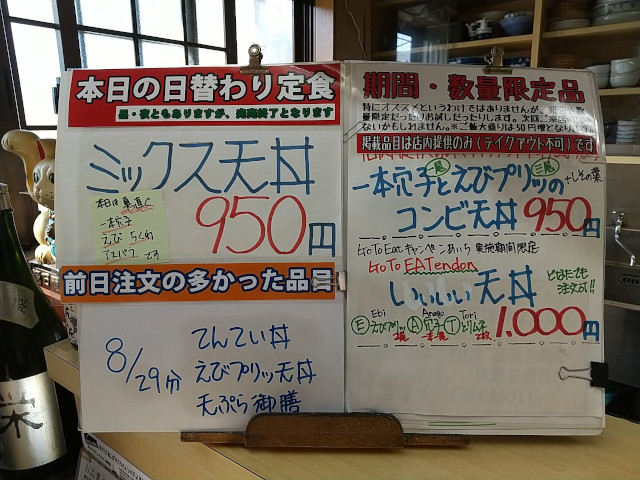 本日の日替わり定食
昼・夜ともありますが、完売終了となります
ミックス天丼
本日は
一本穴子
えび ちくわ
アスパラ です
950円
前日注文の多かった品目
8/29分
てんてい丼
えびプリッツ天丼
天ぷら御膳
期間・数量限定品
特にオススメというわけではありませんが、期間
量限定だったりお試しだったりします。次回ご来店
ないかもしれません。※ご飯大盛りは50円増となりま
掲載品目は店内提供のみ(テイクアウト不可)です
一本 二尾
一本穴子とえびプリッツの
+しその葉
コンビ天丼 950円
GoToEatキャンペーンあいち 実施期間限定
GoTo EATendon
いいいい天丼
どなたでも
注文可!!
Ebi Anago Tori
Eえびプリッツ A穴子 Tとりムネ
2尾 一本 2枚
1,000円
栄